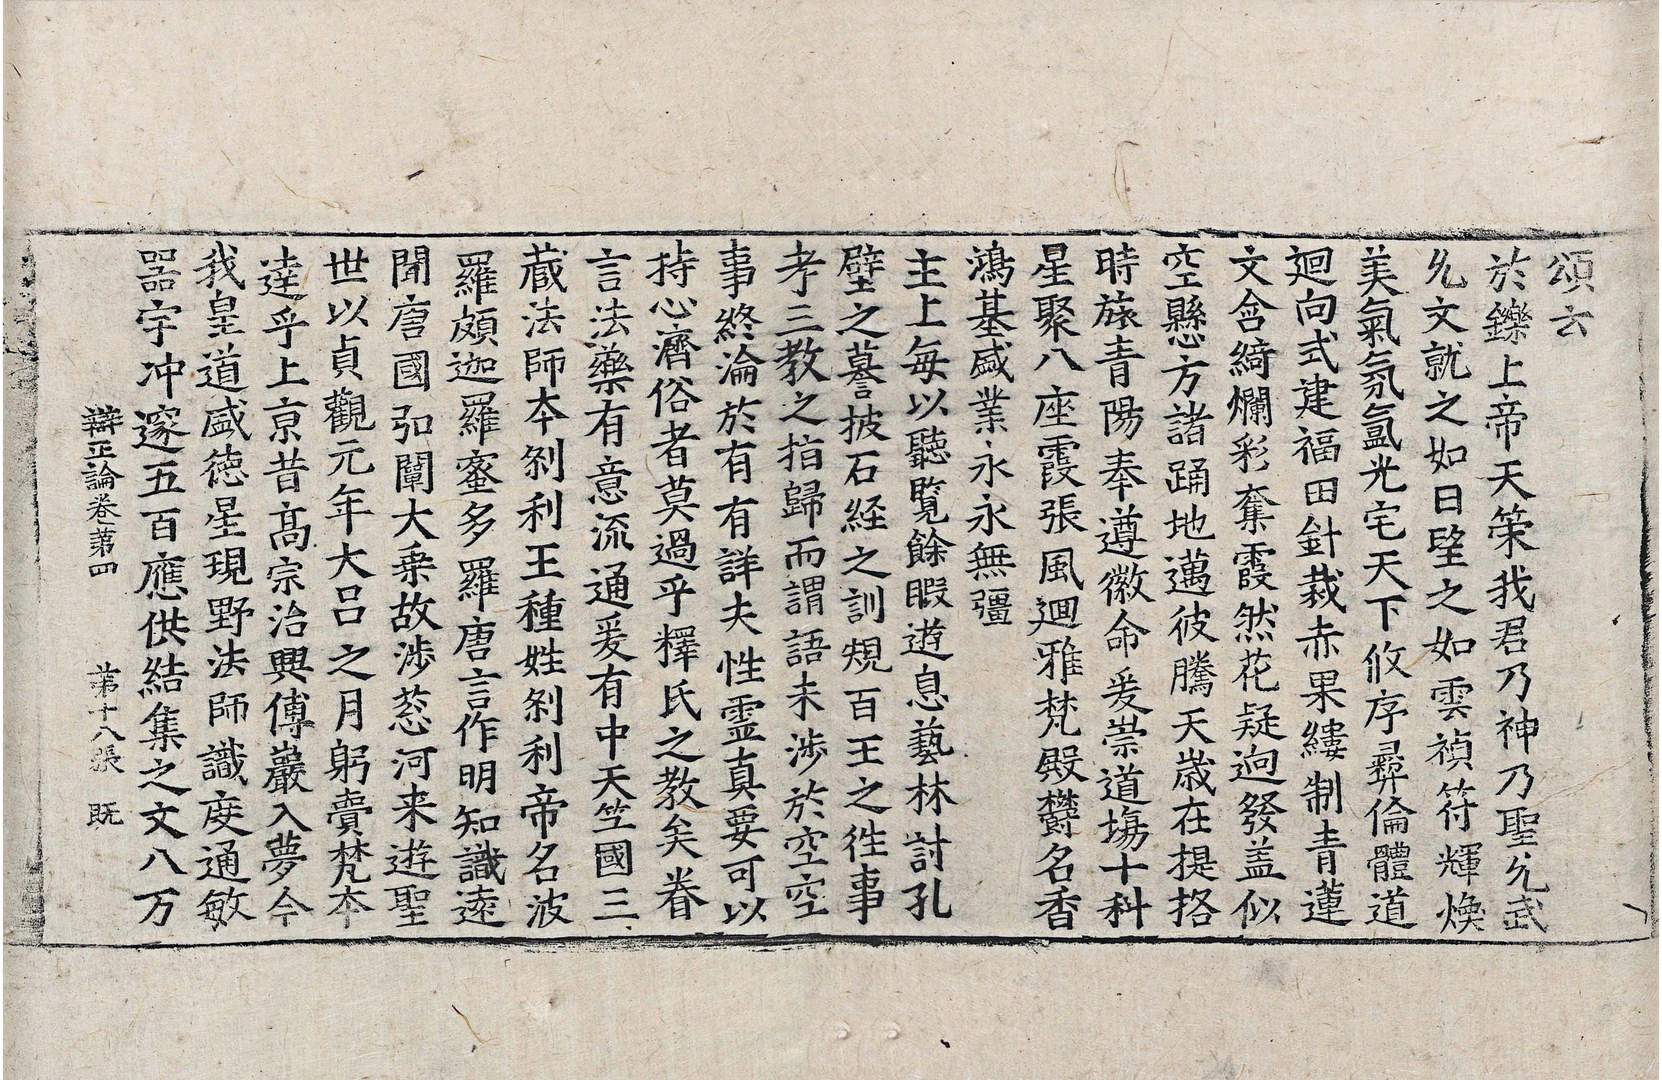 頌云
於鑠上帝天筞我君乃神乃聖允武
允文就之如日朢之如雲禎符輝煥
美氣氛氳光宅天下攸序彛倫體道
迴向式建福田針裁赤果縷制青蓮
文含綺爛彩奪霞然花疑逈發盖似
空懸方諸踊地邁彼騰天歳在提挌
時旅青陽奉遵徽命爰崇道塲十科
星聚八座霞張風迴雅梵殿欝名香
鴻基盛業永永無彊
主上每以聽覽餘暇遊息藝林討孔
壁之蓍披石経之訓規百王之徃事
孝三教之指歸而謂語未渉於空空
事終淪於有有詳夫性靈真要可以
持心濟俗者莫過乎釋氏之教矣眷
言法藥有意流通爰有中天笁國三
蔵法師本剎利王種姓剎利帝名波
羅頗迦羅蜜多羅唐言作明知識逺
聞唐國弘闡大乗故渉葱河来遊聖
世以貞觀元年大吕之月躬賷梵本
達乎上京昔髙宗治興傅巖入夢今
我皇道盛徳星現野法師識度通敏
器宇冲邃五百應供結集之文八万
辯正論卷第四　第十八張　既